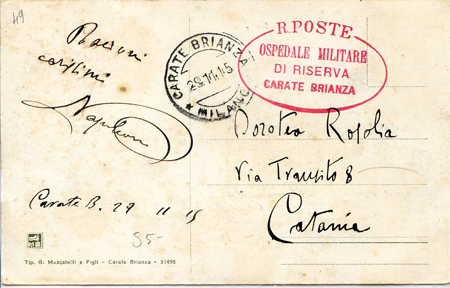 49
Bacioni
carissimi
Napoleon
Carate B. 29 11 15
S5-
Tip. G. Moscatelli e Figli - Carate Brianza - 31495
CARATE BRIANZA
29.11.15
★ MILANO
R. POSTE
OSPEDALE MILITARE
DI RISERVA
CARATE BRIANZA
Dorotea Rosolia
Via Transito 8
Catania